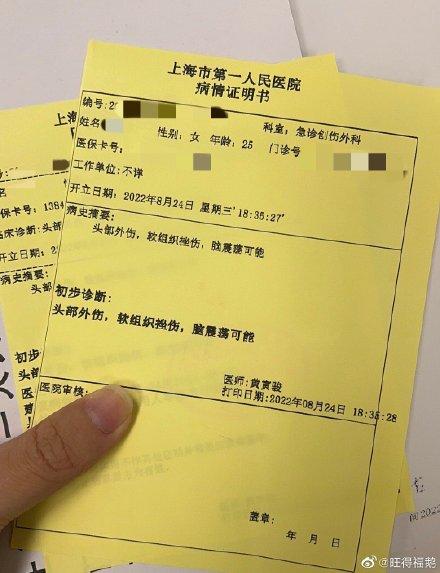 上海市第一人民医院
病情证明书
编号: 2
姓名 性别: 女 年龄: 25 科室: 急诊创伤外科
医保卡号: 门诊号
工作单位: 不详
开立日期: 2022年8月24日 星期三' 18:35:27'
病史摘要:
头部外伤, 软组织挫伤, 脑震荡可能
初步诊断:
头部外伤, 软组织挫伤, 脑震荡可能
医师: 黄寅骏
打印日期: 2022年08月24日 18:35:28
医院审核:
盖章:
年 月 日
上海市
保卡号: 1384
床诊断: 头部
开立日期: 2
病史摘要:
头部外
初步
头部
医
@旺得福鹅